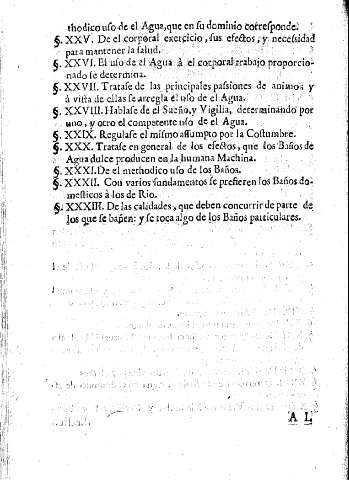 thodico uso de el Agua, que en su dominio corresponde.
§. XXV. De el corporal exercicio, sus efectos; y necessidad
para mantener la salud.
§. XXVI. El uso de el Agua à el corporal trabajo proporcio-
nado se determina.
§. XXVII. Tratase de las principales passiones de animo, y
à vista de ellas se arregla el uso de el Agua.
§. XXVIII. Hablase de el Sueño, y Vigilia, determinando por
uno, y otro el competente uso de el Agua.
§. XXIX. Regulase el mismo assumpto por la Costumbre.
§. XXX. Tratase en general de los efectos, que los Baños de
Agua dulce producen en la humana Machina.
§. XXXI. De el methodico uso de los Baños.
§. XXXII. Con varios fundamentos se prefieren los Baños do-
mesticos à los de Rio.
§. XXXIII. De las calidades, que deben concurrir de parte de
los que se bañen: y se toca algo de los Baños particulares.
A L